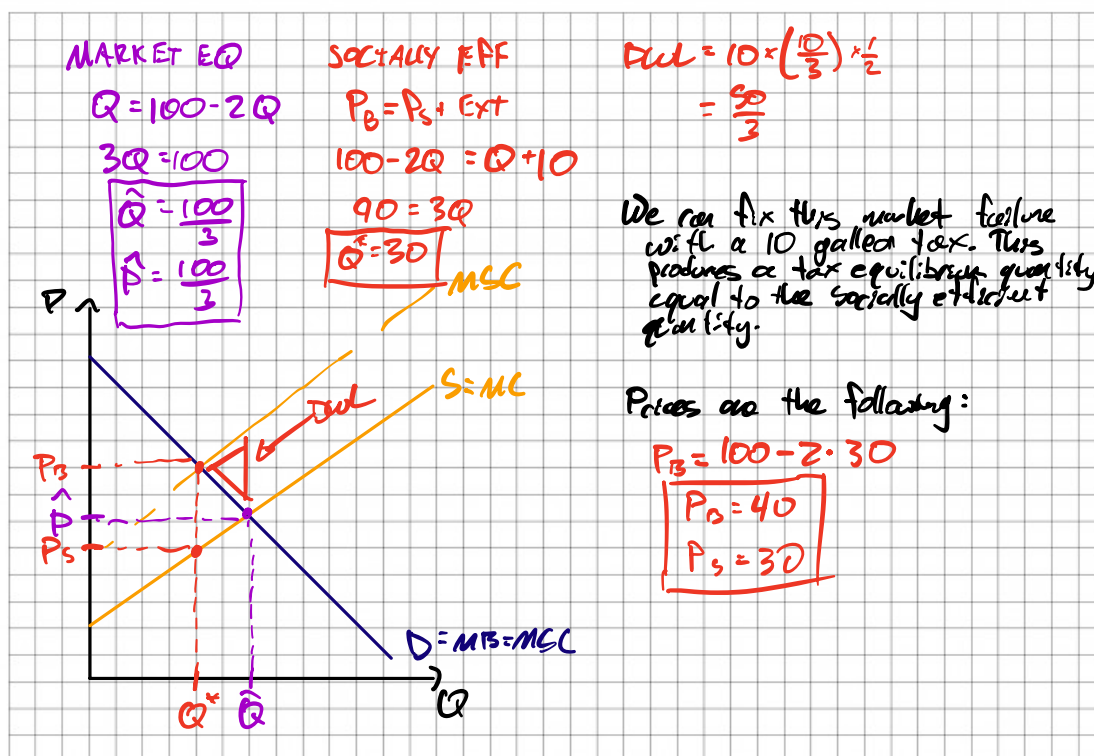 MARKET EQ
Q = 100 - 2Q
3Q = 100
Q̂ = 100/3
P̂ = 100/3
SOCIALLY EFF
P_B = P_S + Ext
100 - 2Q = Q + 10
90 = 3Q
Q* = 30
DWL = 10 × (10/3) × 1/2
= 50/3
We can fix this market failure
with a 10 gallon tax. This
produces a tax equilibrium quantity
equal to the socially efficient
quantity.
Prices are the following:
P_B = 100 - 2 · 30
P_B = 40
P_S = 30
P
MSC
S = MC
DWL
P_B
P̂
P_S
D = MB = MSC
Q* Q̂ Q